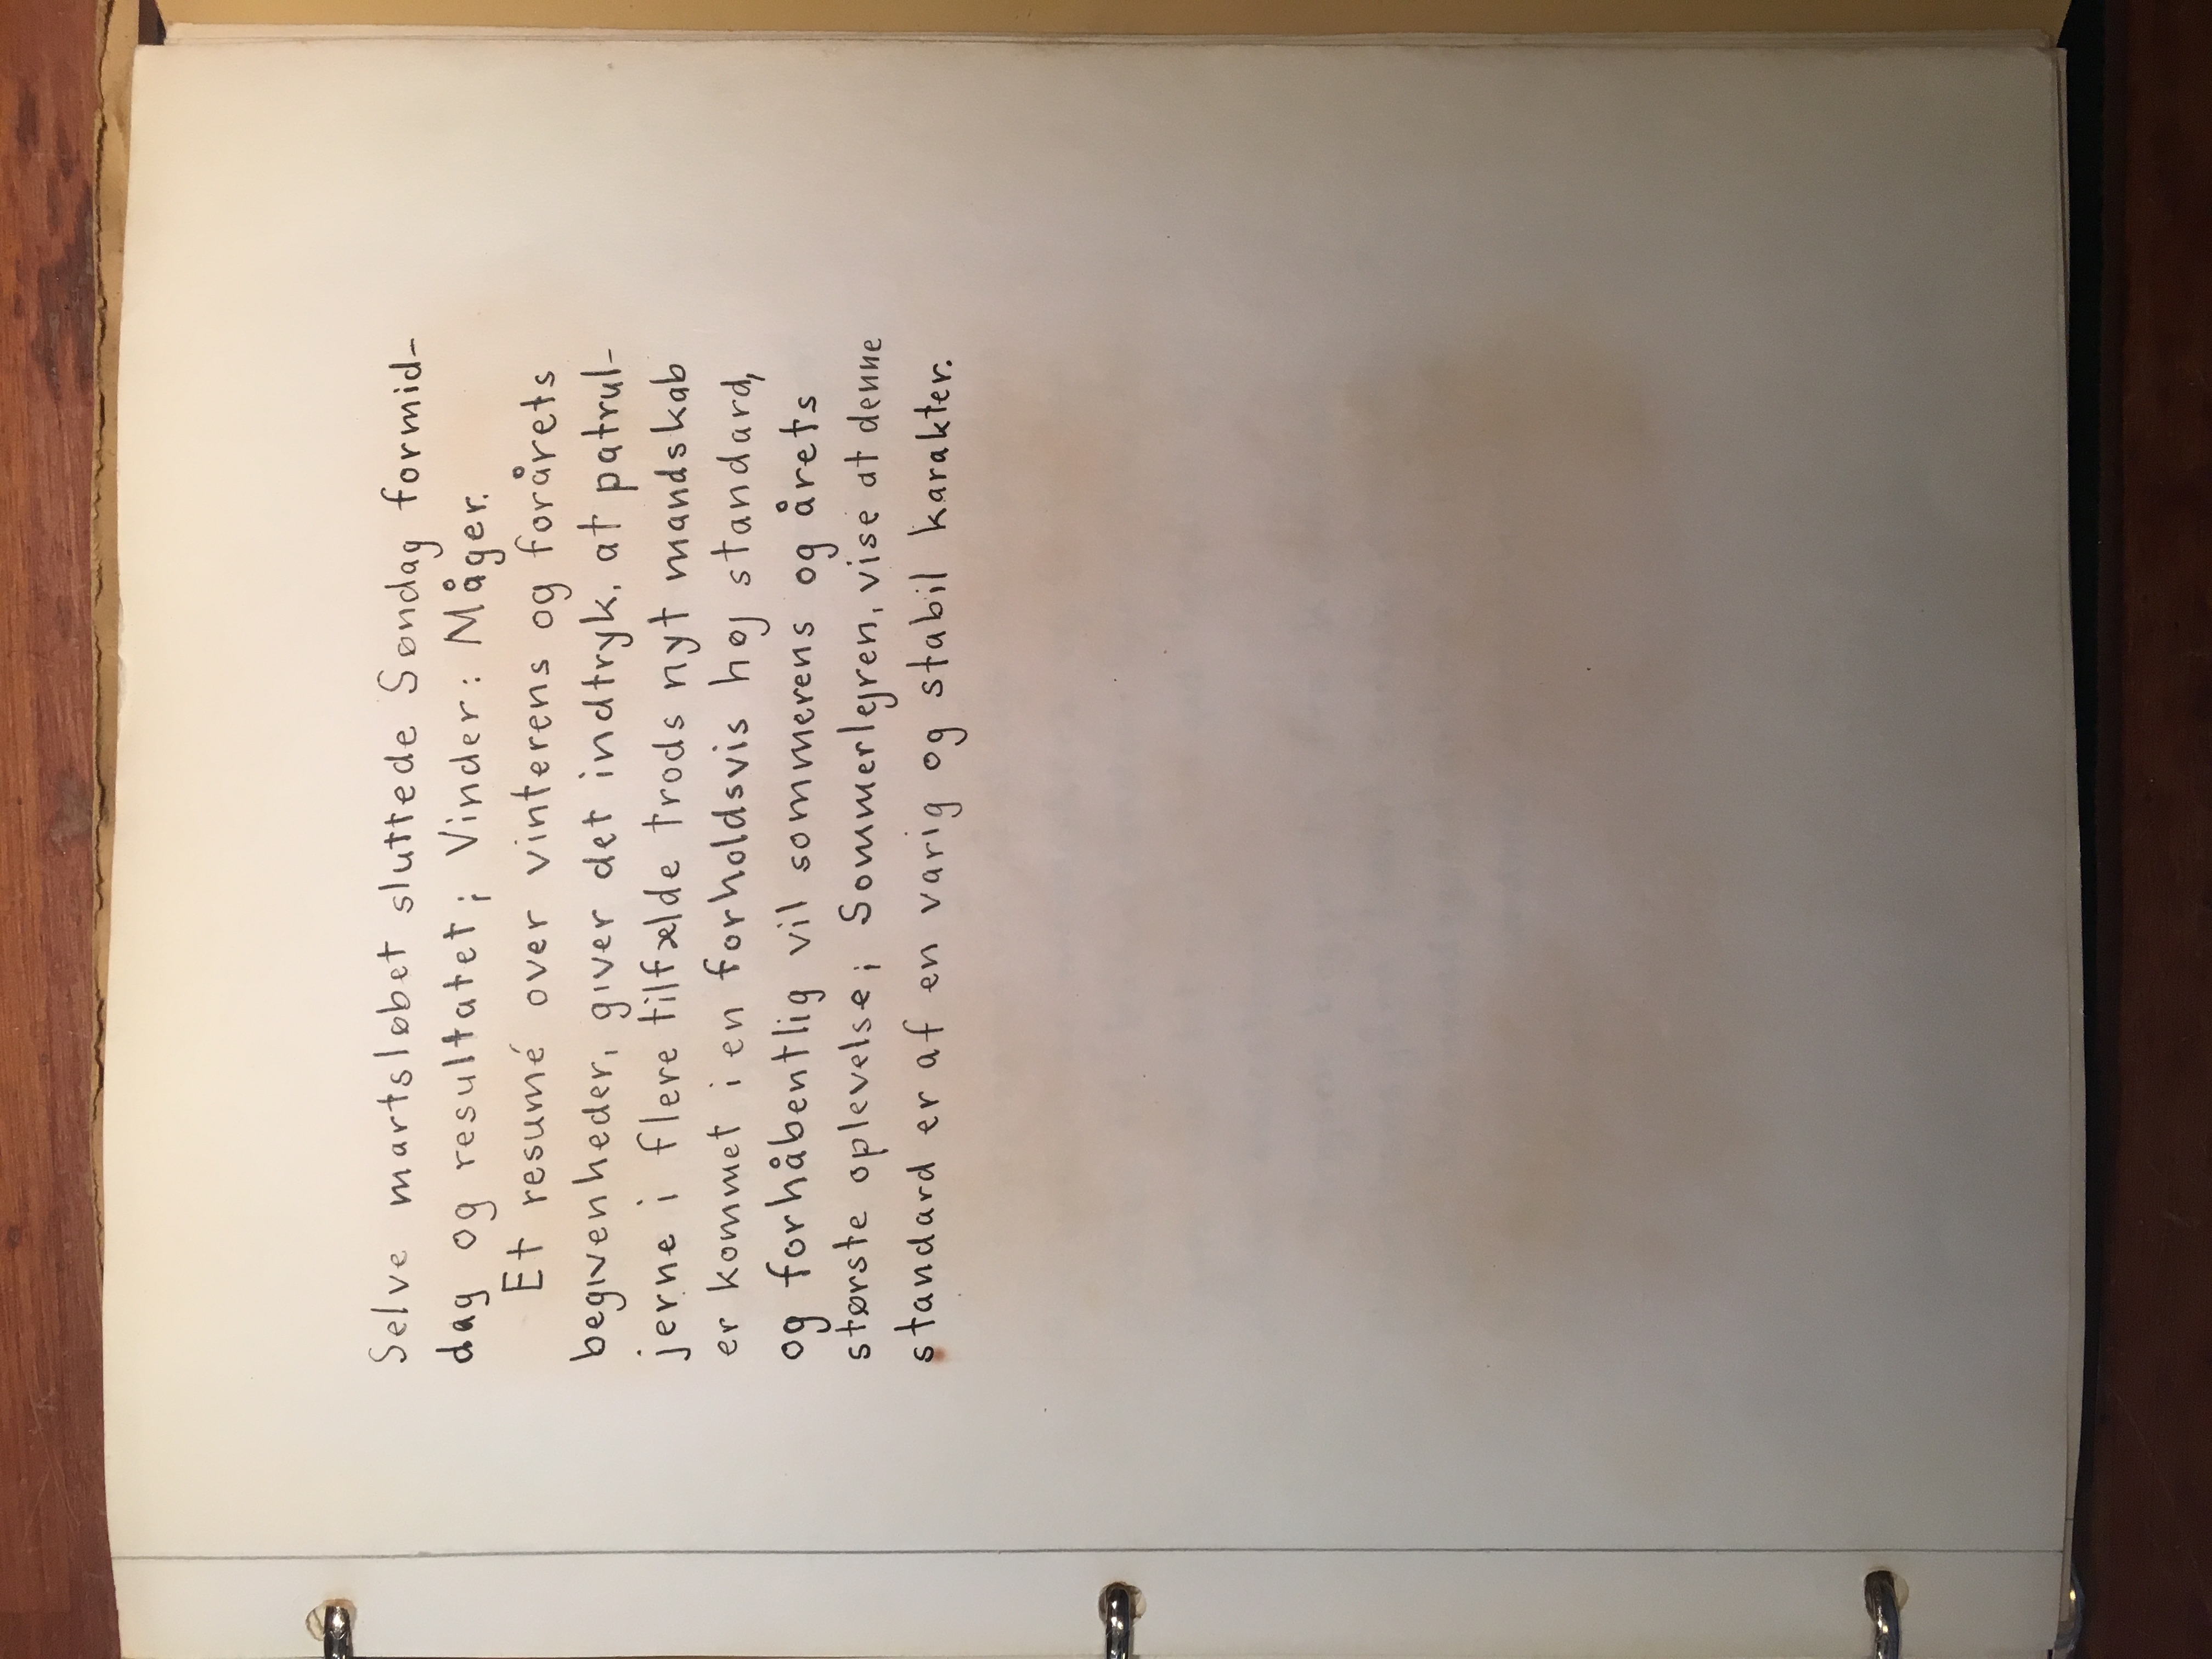 Selve martsløbet sluttede Søndag formid-
dag og resultatet; Vinder: Måger.
Et resumé over vinterens og forårets
begivenheder, giver det indtryk, at patrul-
jerne i flere tilfælde trods nyt mandskab
er kommet i en forholdsvis høj standard,
og forhåbentlig vil sommerens og årets
største oplevelse; Sommerlejren, vise at denne
standard er af en varig og stabil karakter.